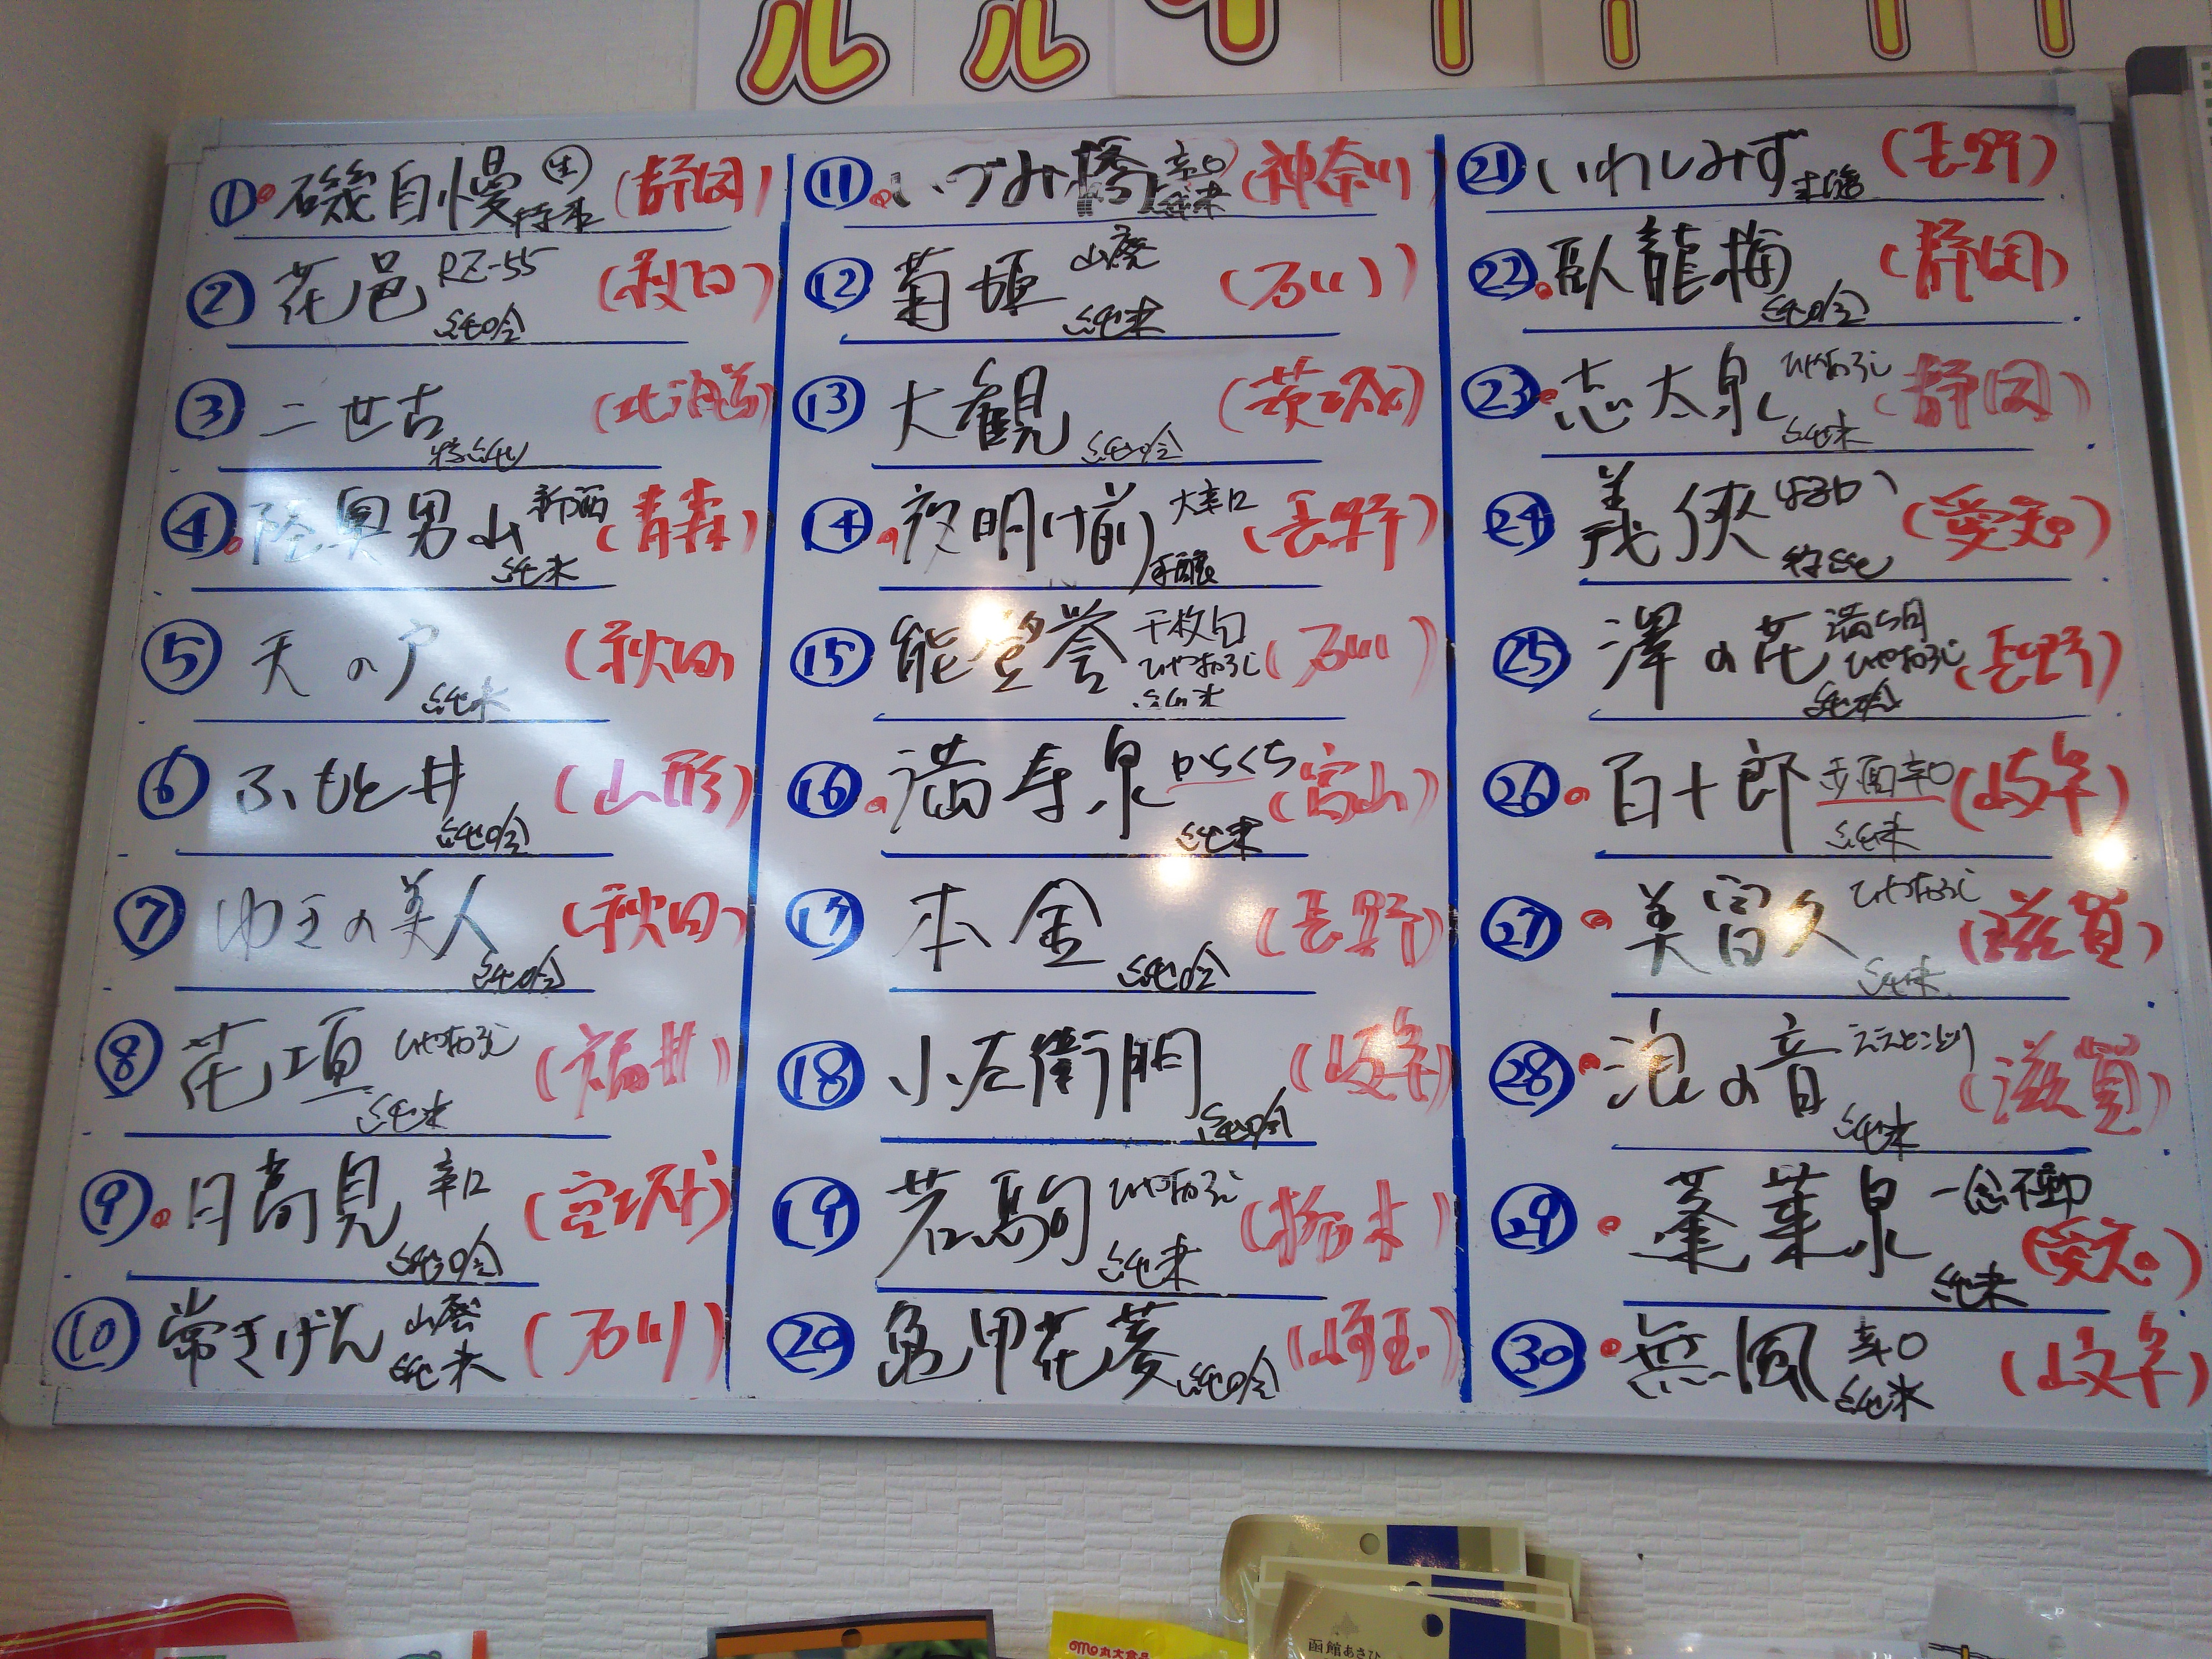 ルル
① 磯自慢 生 特本 (静岡)
② 花邑 RZ-55 純吟 (秋田)
③ 二世古 特純 (北海道)
④ 陸奥男山 新酒 純米 (青森)
⑤ 天の戸 純米 (秋田)
⑥ ふもと井 純吟 (山形)
⑦ ゆきの美人 純吟 (秋田)
⑧ 花垣 ひやおろし 純米 (福井)
⑨ 日高見 辛口 純吟 (宮城)
⑩ 常きげん 山廃 純米 (石川)
⑪ いづみ橋 辛口 純米 (神奈川)
⑫ 菊姫 山廃 純米 (石川)
⑬ 大観 純吟 (茨城)
⑭ 夜明け前 大辛口 本醸 (長野)
⑮ 能登誉 千枚田 ひやおろし 純米 (石川)
⑯ 満寿泉 からくち 純米 (富山)
⑰ 本金 純吟 (長野)
⑱ 小左衛門 純吟 (岐阜)
⑲ 若駒 ひやおろし 純米 (栃木)
⑳ 亀甲花菱 純吟 (埼玉)
㉑ いわしみず 本醸 (長野)
㉒ 臥龍梅 純吟 (静岡)
㉓ 志太泉 ひやおろし 純米 (静岡)
㉔ 義侠 特純 (愛知)
㉕ 澤の花 ひやおろし 純吟 (長野)
㉖ 百十郎 赤面 辛口 純米 (岐阜)
㉗ 美冨久 ひやおろし 純米 (滋賀)
㉘ 浪の音 ええとこどり 純米 (滋賀)
㉙ 蓬莱泉 一念不動 純米 (愛知)
㉚ 無風 辛口 純米 (岐阜)
函館あさひ